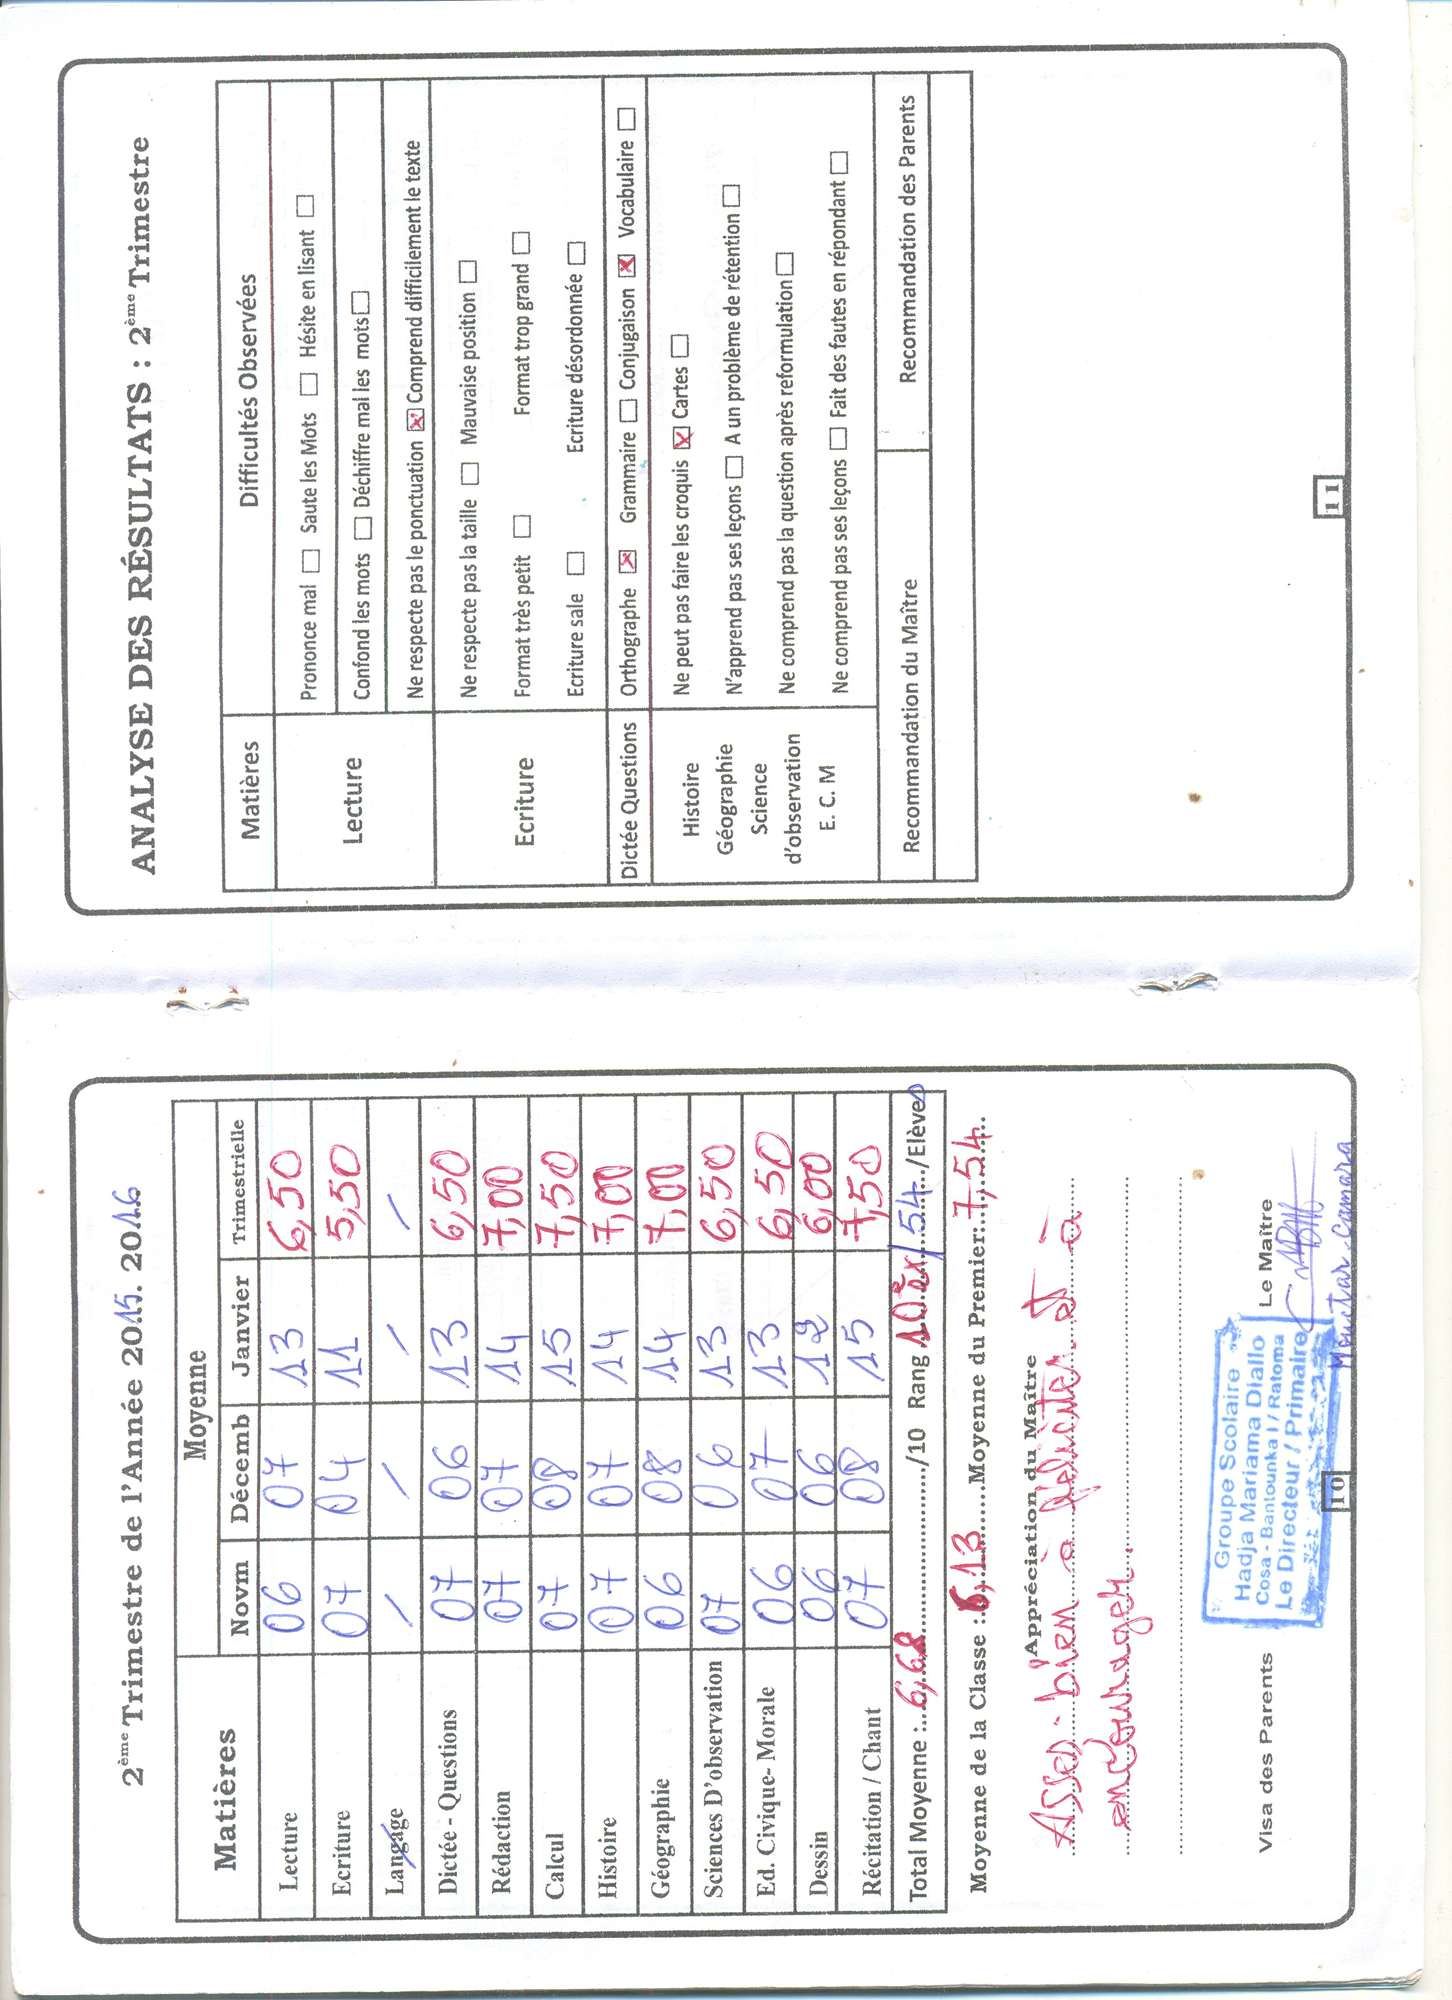 2ème Trimestre de l'Année 2015. 2016
Matières Moyenne
Novm Décemb Janvier Trimestrielle
Lecture 06 07 13 6,50
Ecriture 07 04 11 5,50
Langage / / / /
Dictée - Questions 07 06 13 6,50
Rédaction 07 07 14 7,00
Calcul 07 08 15 7,50
Histoire 07 07 14 7,00
Géographie 06 08 14 7,00
Sciences D'observation 07 06 13 6,50
Ed. Civique- Morale 06 07 13 6,50
Dessin 06 06 12 6,00
Récitation / Chant 07 08 15 7,50
Total Moyenne : 6,68 /10 Rang 10è ex / 54 /Elèves
Moyenne de la Classe : 6,13 Moyenne du Premier: 7,54
Appréciation du Maître
Assez-bien à féliciter et à
encourager.
Visa des Parents Le Maître
Groupe Scolaire
Hadja Mariama Diallo
Cosa - Bantounka I / Ratoma
Le Directeur / Primaire
Moctar Camara
10
ANALYSE DES RÉSULTATS : 2ème Trimestre
Matières Difficultés Observées
Lecture
Prononce mal Saute les Mots Hésite en lisant
Confond les mots Déchiffre mal les mots
Ne respecte pas le ponctuation Comprend difficilement le texte
Ecriture
Ne respecte pas la taille Mauvaise position
Format très petit Format trop grand
Ecriture sale Ecriture désordonnée
Dictée Questions Orthographe Grammaire Conjugaison Vocabulaire
Histoire
Géographie
Science
d'observation
E. C. M
Ne peut pas faire les croquis Cartes
N'apprend pas ses leçons A un problème de rétention
Ne comprend pas la question après reformulation
Ne comprend pas ses leçons Fait des fautes en répondant
Recommandation du Maître Recommandation des Parents
11